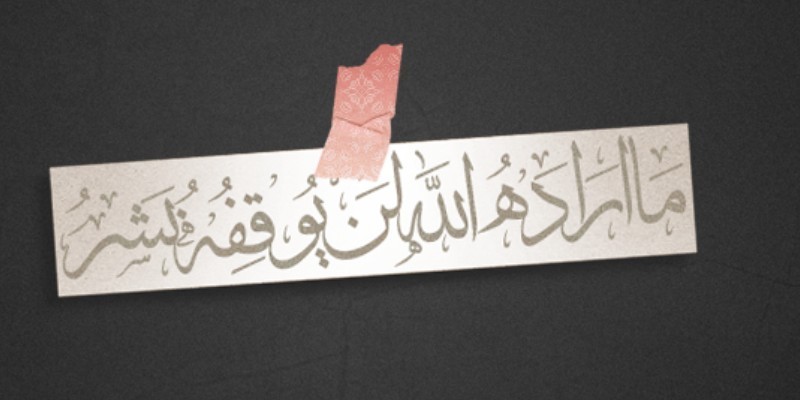 ما اراده الله لن يوقفه بشر